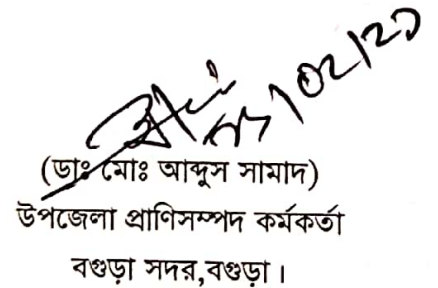 (ডাঃ মোঃ আব্দুস সামাদ)
উপজেলা প্রাণিসম্পদ কর্মকর্তা
বগুড়া সদর,বগুড়া।